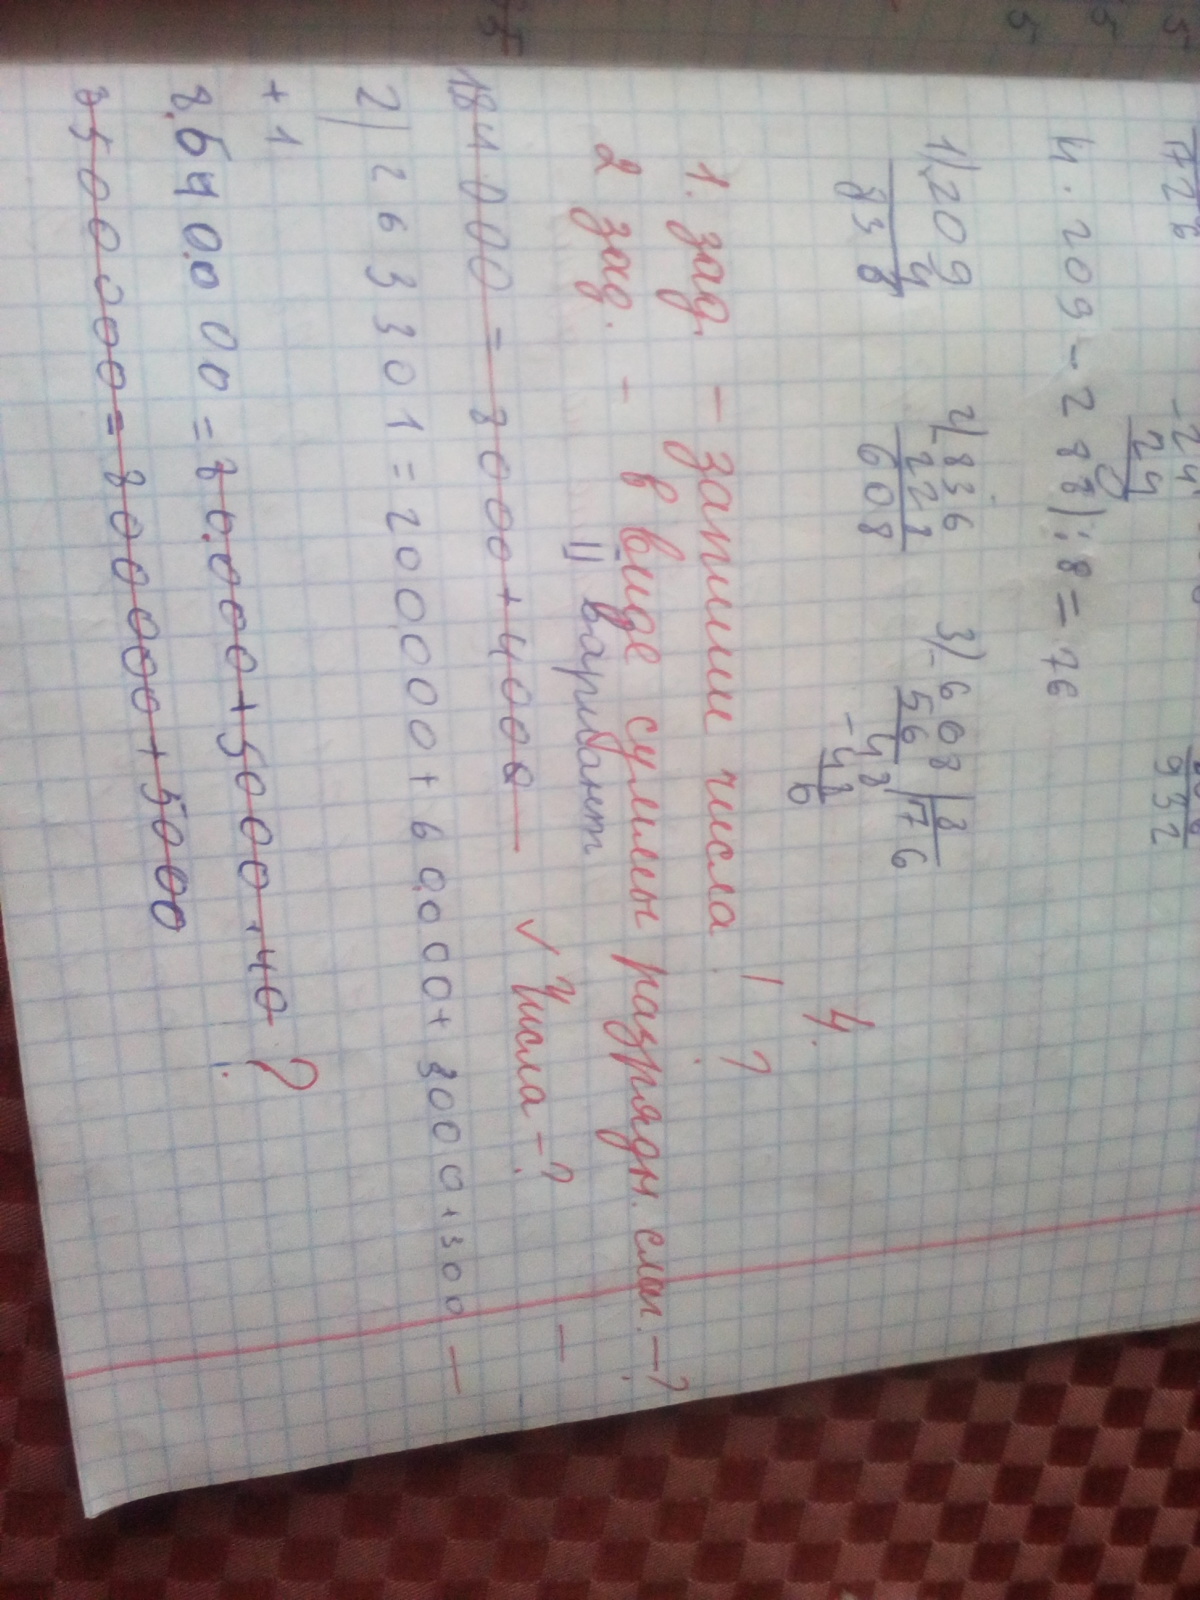 728
-24
24
0
932
4·209-288):8=76
1)209
4
836
2)-836
228
608
3)-608|8
56 |76
48
-48
0
4.
1. зад. - запиши числа. | ?
2 зад. - в виде суммы разрядн. слаг. -?
II вариант
84000=8000+4000 ✓ Числа -?
2) 263301=200.000+60.000+3000+300
+1
8.640.000=80.000+5000+40 ?
85000000=800000+5000